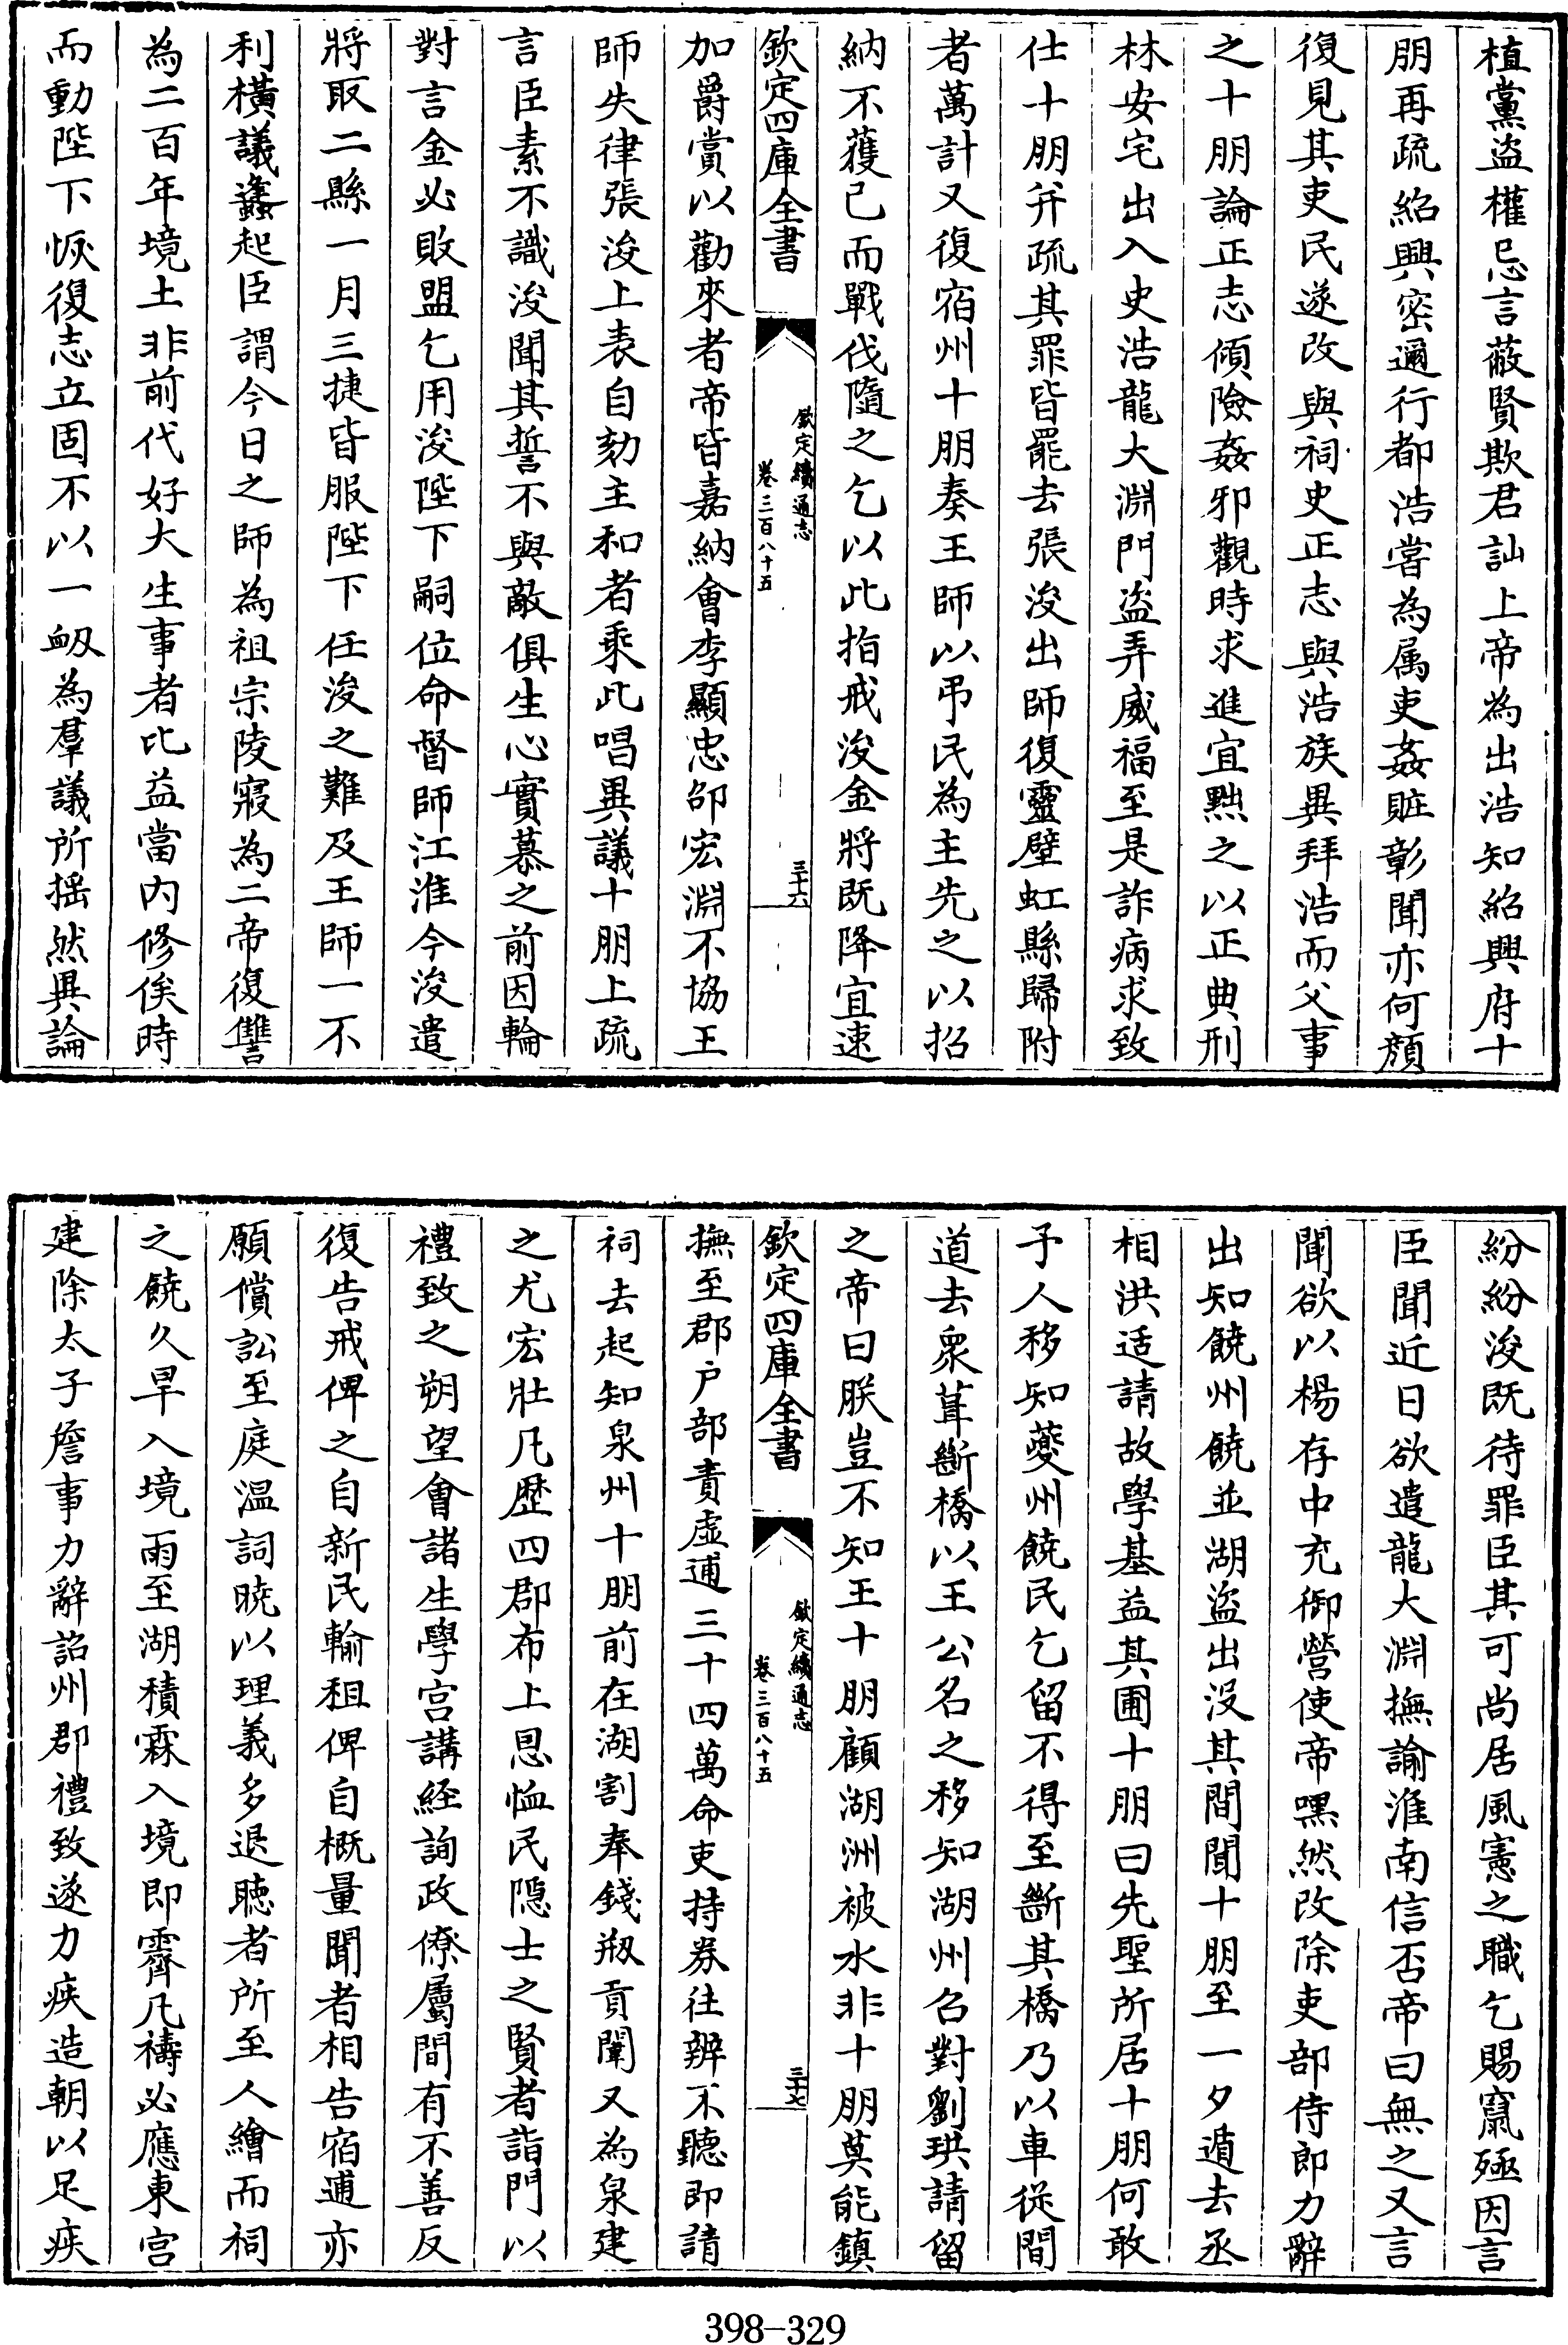 植黨盜權忌言蔽賢欺君訕上帝為出浩知紹興府十
朋再疏紹興密邇行都浩嘗為属吏姦賍彰聞亦何顔
復見其吏民遂改與祠史正志與浩族異拜浩而父事
之十朋論正志傾險姦邪觀時求進宜黜之以正典刑
林安宅出入史浩龍大淵門盜弄威福至是詐病求致
仕十朋并疏其罪皆罷去張浚出師復靈壁虹縣歸附
者萬計又復宿州十朋奏王師以弔民為主先之以招
納不獲已而戰伐隨之乞以此指戒浚金將既降宜速
欽定四庫全書
欽定續通志
卷三百八十五
三十六
加爵賞以勸來者帝皆嘉納會李顯忠邵宏淵不協王
師失律張浚上表自劾主和者乘此唱異議十朋上疏
言臣素不識浚聞其誓不與敵俱生心實慕之前因輪
對言金必敗盟乞用浚陛下嗣位命督師江淮今浚遣
將取二縣一月三捷皆服陛下任浚之難及王師一不
利橫議蠭起臣謂今日之師為祖宗陵寢為二帝復讐
為二百年境土非前代好大生事者比益當内修俟時
而動陛下恢復志立固不以一衂為羣議所揺然異論
紛紛浚既待罪臣其可尚居風憲之職乞賜竄殛因言
臣聞近日欲遣龍大淵撫諭淮南信否帝曰無之又言
聞欲以楊存中充御營使帝嘿然改除吏部侍郎力辭
出知饒州饒並湖盜出没其間聞十朋至一夕遁去丞
相洪适請故學基益其圃十朋曰先聖所居十朋何敢
予人移知夔州饒民乞留不得至斷其橋乃以車從間
道去衆葺斷橋以王公名之移知湖州召對劉珙請留
之帝曰朕豈不知王十朋顧湖洲被水非十朋莫能鎮
欽定四庫全書
欽定續通志
卷三百八十五
三十七
撫至郡户部責虚逋三十四萬命吏持券往辨不聽即請
祠去起知泉州十朋前在湖割奉錢剏貢闈又為泉建
之尤宏壯凡歴四郡布上恩恤民隠士之賢者詣門以
禮致之朔望會諸生學宫講經詢政僚屬間有不善反
復告戒俾之自新民輸租俾自概量聞者相告宿逋亦
願償訟至庭温詞暁以理義多退聽者所至人繪而祠
之饒久旱入境雨至湖積霖入境即霽凡禱必應東宫
建除太子詹事力辭詔州郡禮致遂力疾造朝以足疾
398-329